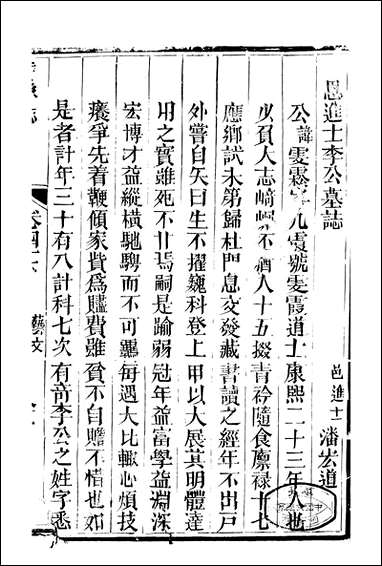 恩進士李公墓誌
邑進士潘宏道
公諱雯霨字九霞號雯霞道士康熙二十三年人也
少負大志崎嶇不猶人十五掇青衿隨食廩祿十七
應鄉試未第歸杜門息交發藏書讀之經年不出戶
外嘗自矢曰生不擢巍科登上甲以大展其明體達
用之實雖死不甘焉嗣是踰弱冠年益富學益淵深
宏博才益縱橫馳騁而不可羈每遇大比輒心煩技
癢爭先着鞭傾家貲為贐費雖貧不自贍不惜也如
是者計年三十有八計科七次有奇李公之姓字悉
縣志
卷四十六
藝文